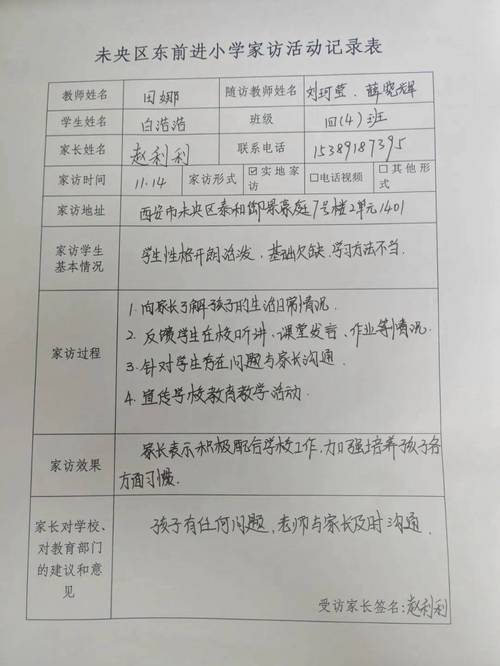 未央区东前进小学家访活动记录表
教师姓名 田娜 随访教师姓名 刘珂莹、薛晓辉
学生姓名 白浩浩 班级 四(4)班
家长姓名 赵利利 联系电话 15389187395
家访时间 11.14 家访形式 ☑实地家访 □电话视频 □其他形式
家访地址 西安市未央区泰和御景豪庭7号楼2单元1401
家访学生基本情况 学生性格开朗活泼,基础欠缺,学习方法不当.
家访过程
1. 向家长了解孩子的生活日常情况.
2. 反馈学生在校听讲、课堂发言、作业等情况.
3. 针对学生存在问题与家长沟通.
4. 宣传学校教育教学活动.
家访效果
家长表示积极配合学校工作,加强培养孩子各
方面习惯.
家长对学校、
对教育部门
的建议和意
见
孩子有任何问题,老师与家长及时沟通.
受访家长签名:赵利利